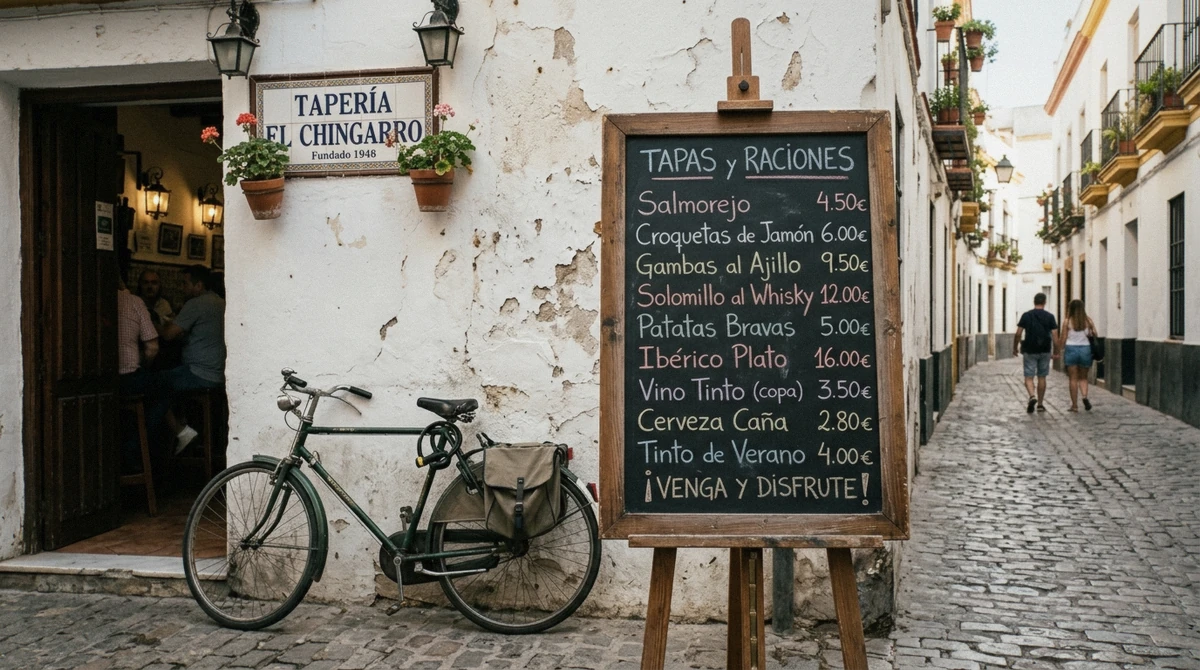 TAPERÍA
EL CHINGARRO
Fundado 1948
TAPAS y RACIONES
Salmorejo 4.50€
Croquetas de Jamón 6.00€
Gambas al Ajillo 9.50€
Solomillo al Whisky 12.00€
Patatas Bravas 5.00€
Ibérico Plato 16.00€
Vino Tinto (copa) 3.50€
Cerveza Caña 2.80€
Tinto de Verano 4.00€
¡VENGA Y DISFRUTE!